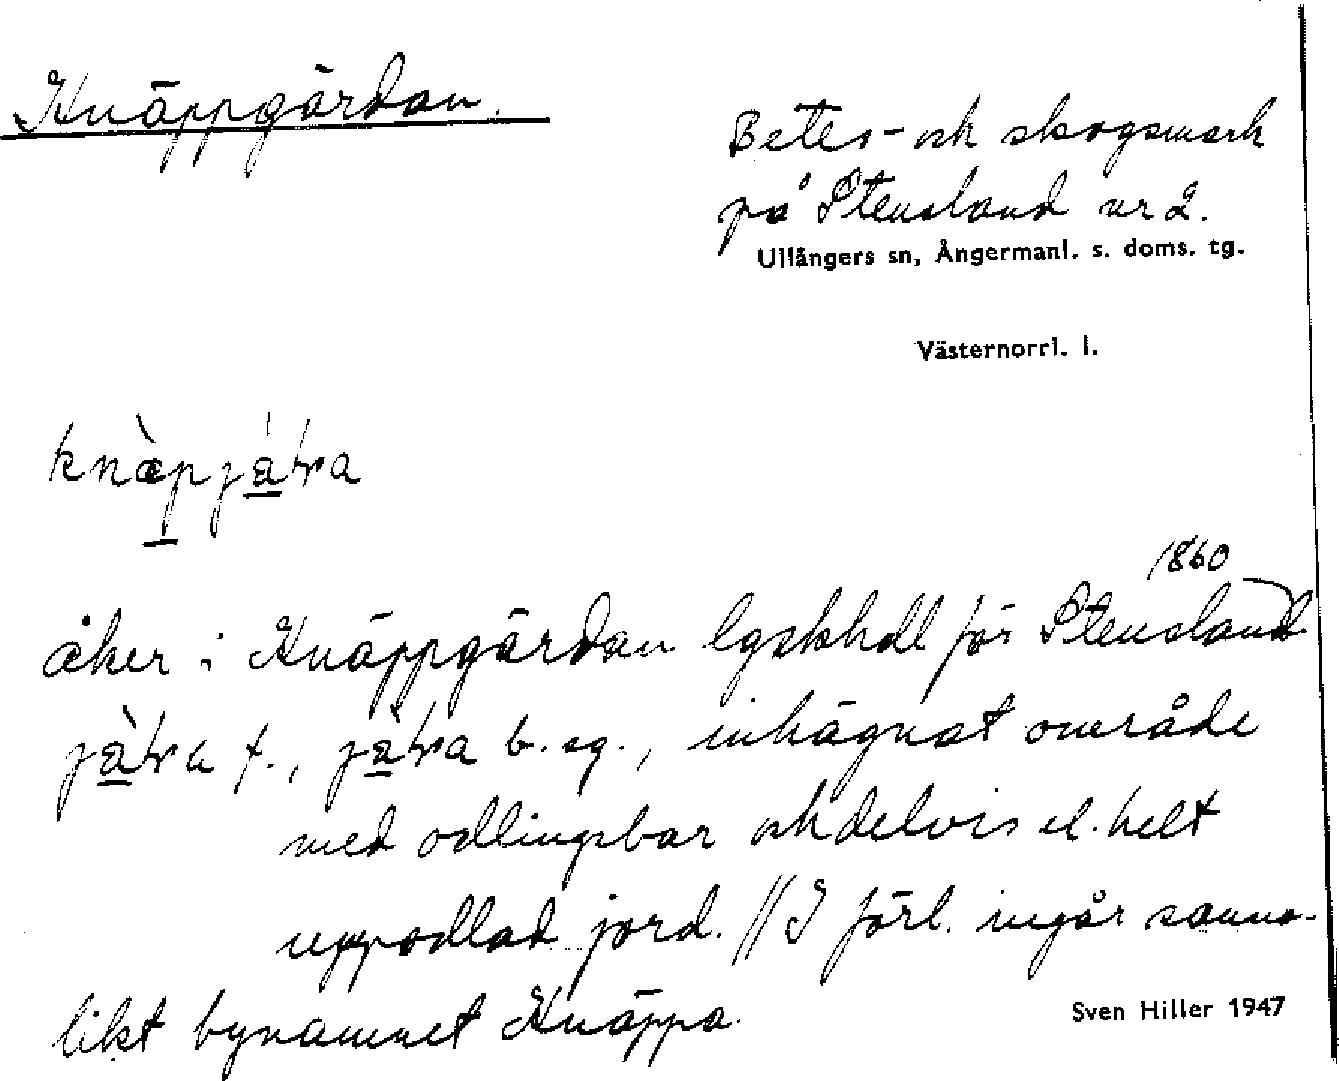 Knäppgärdan.
Betes- och skogsmark
på Stensland nr 2.
Ullångers sn, Ångermanl. s. doms. tg.
Västernorrl. l.
1860
åker i Knäppgärdan lgskhdl för Stensland
f., b. sg., inhägnat område
med odlingsbar och delvis el. helt
uppodlad jord. // I förl. ingår sanno-
likt bynamnet Knäppa.
Sven Hiller 1947